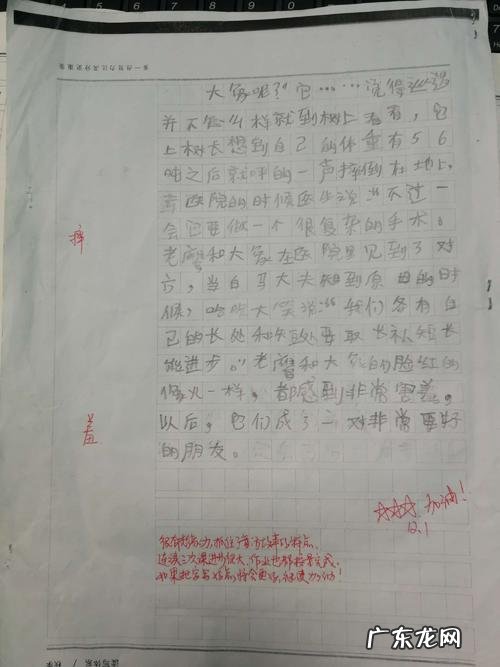 大象呢?"它……说得
并不怎么样就到树上看看,它
上树长想到自己的体重有56
吨之后就呯的一声摔倒在地上,
医院的时候医生说"不过一
会它要做一个很复杂的手术。
老鹰和大象在医院里见到了对
方,当白马大夫知到原因的时
候,哈哈大笑说:"我们各有自
己的长处和短处要取长补短长
能进步。"老鹰和大象的脸红的
像火一样,都感到非常害羞。
以后,它们成了一对非常要好
的朋友。
摔
羞
加油!
12.1
很有想象力,抓住了童话故事的特点。
连续三次课进步很大,作业也都按量完成。
如果把字写好点,将会更好,继续加油!
广东龙网